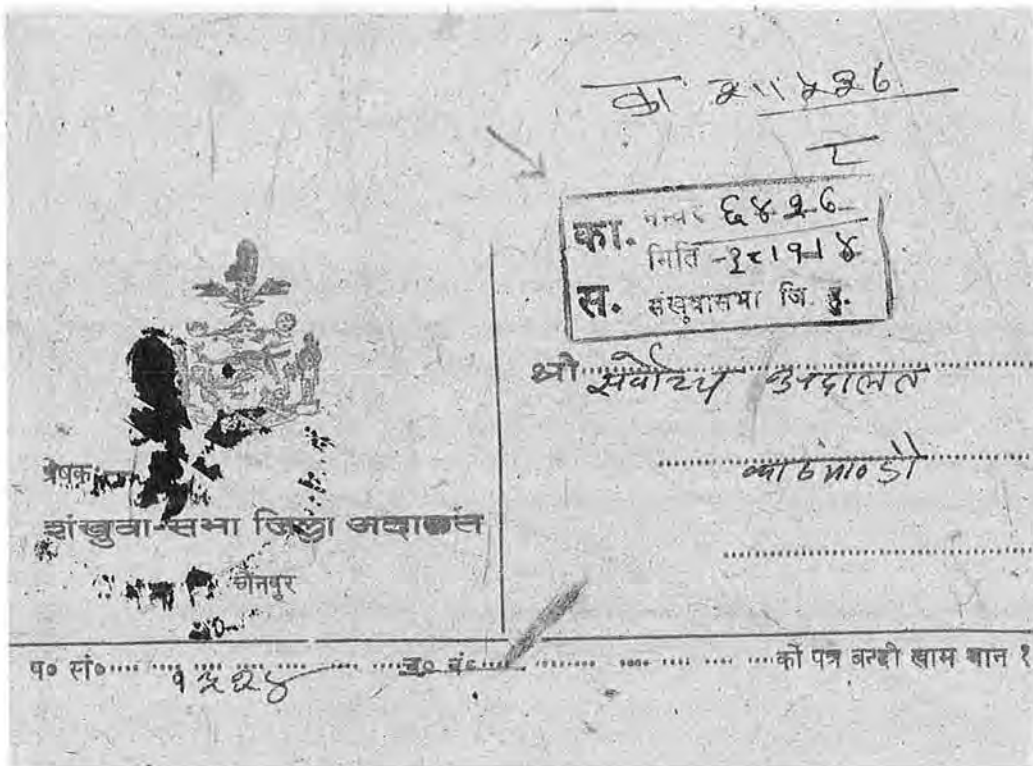 का. नम्वर ६४२७
मिति -२८।१।४
स. संखुवासभा जि. हु.
श्री सर्वोच्च अदालत
काठमाण्डौ
प्रेषकः
शंखुवा-सभा जिल्ला अदालत
चैनपुर
प० सं० १५२४ च० नं० को पत्र बन्दी खाम थान १